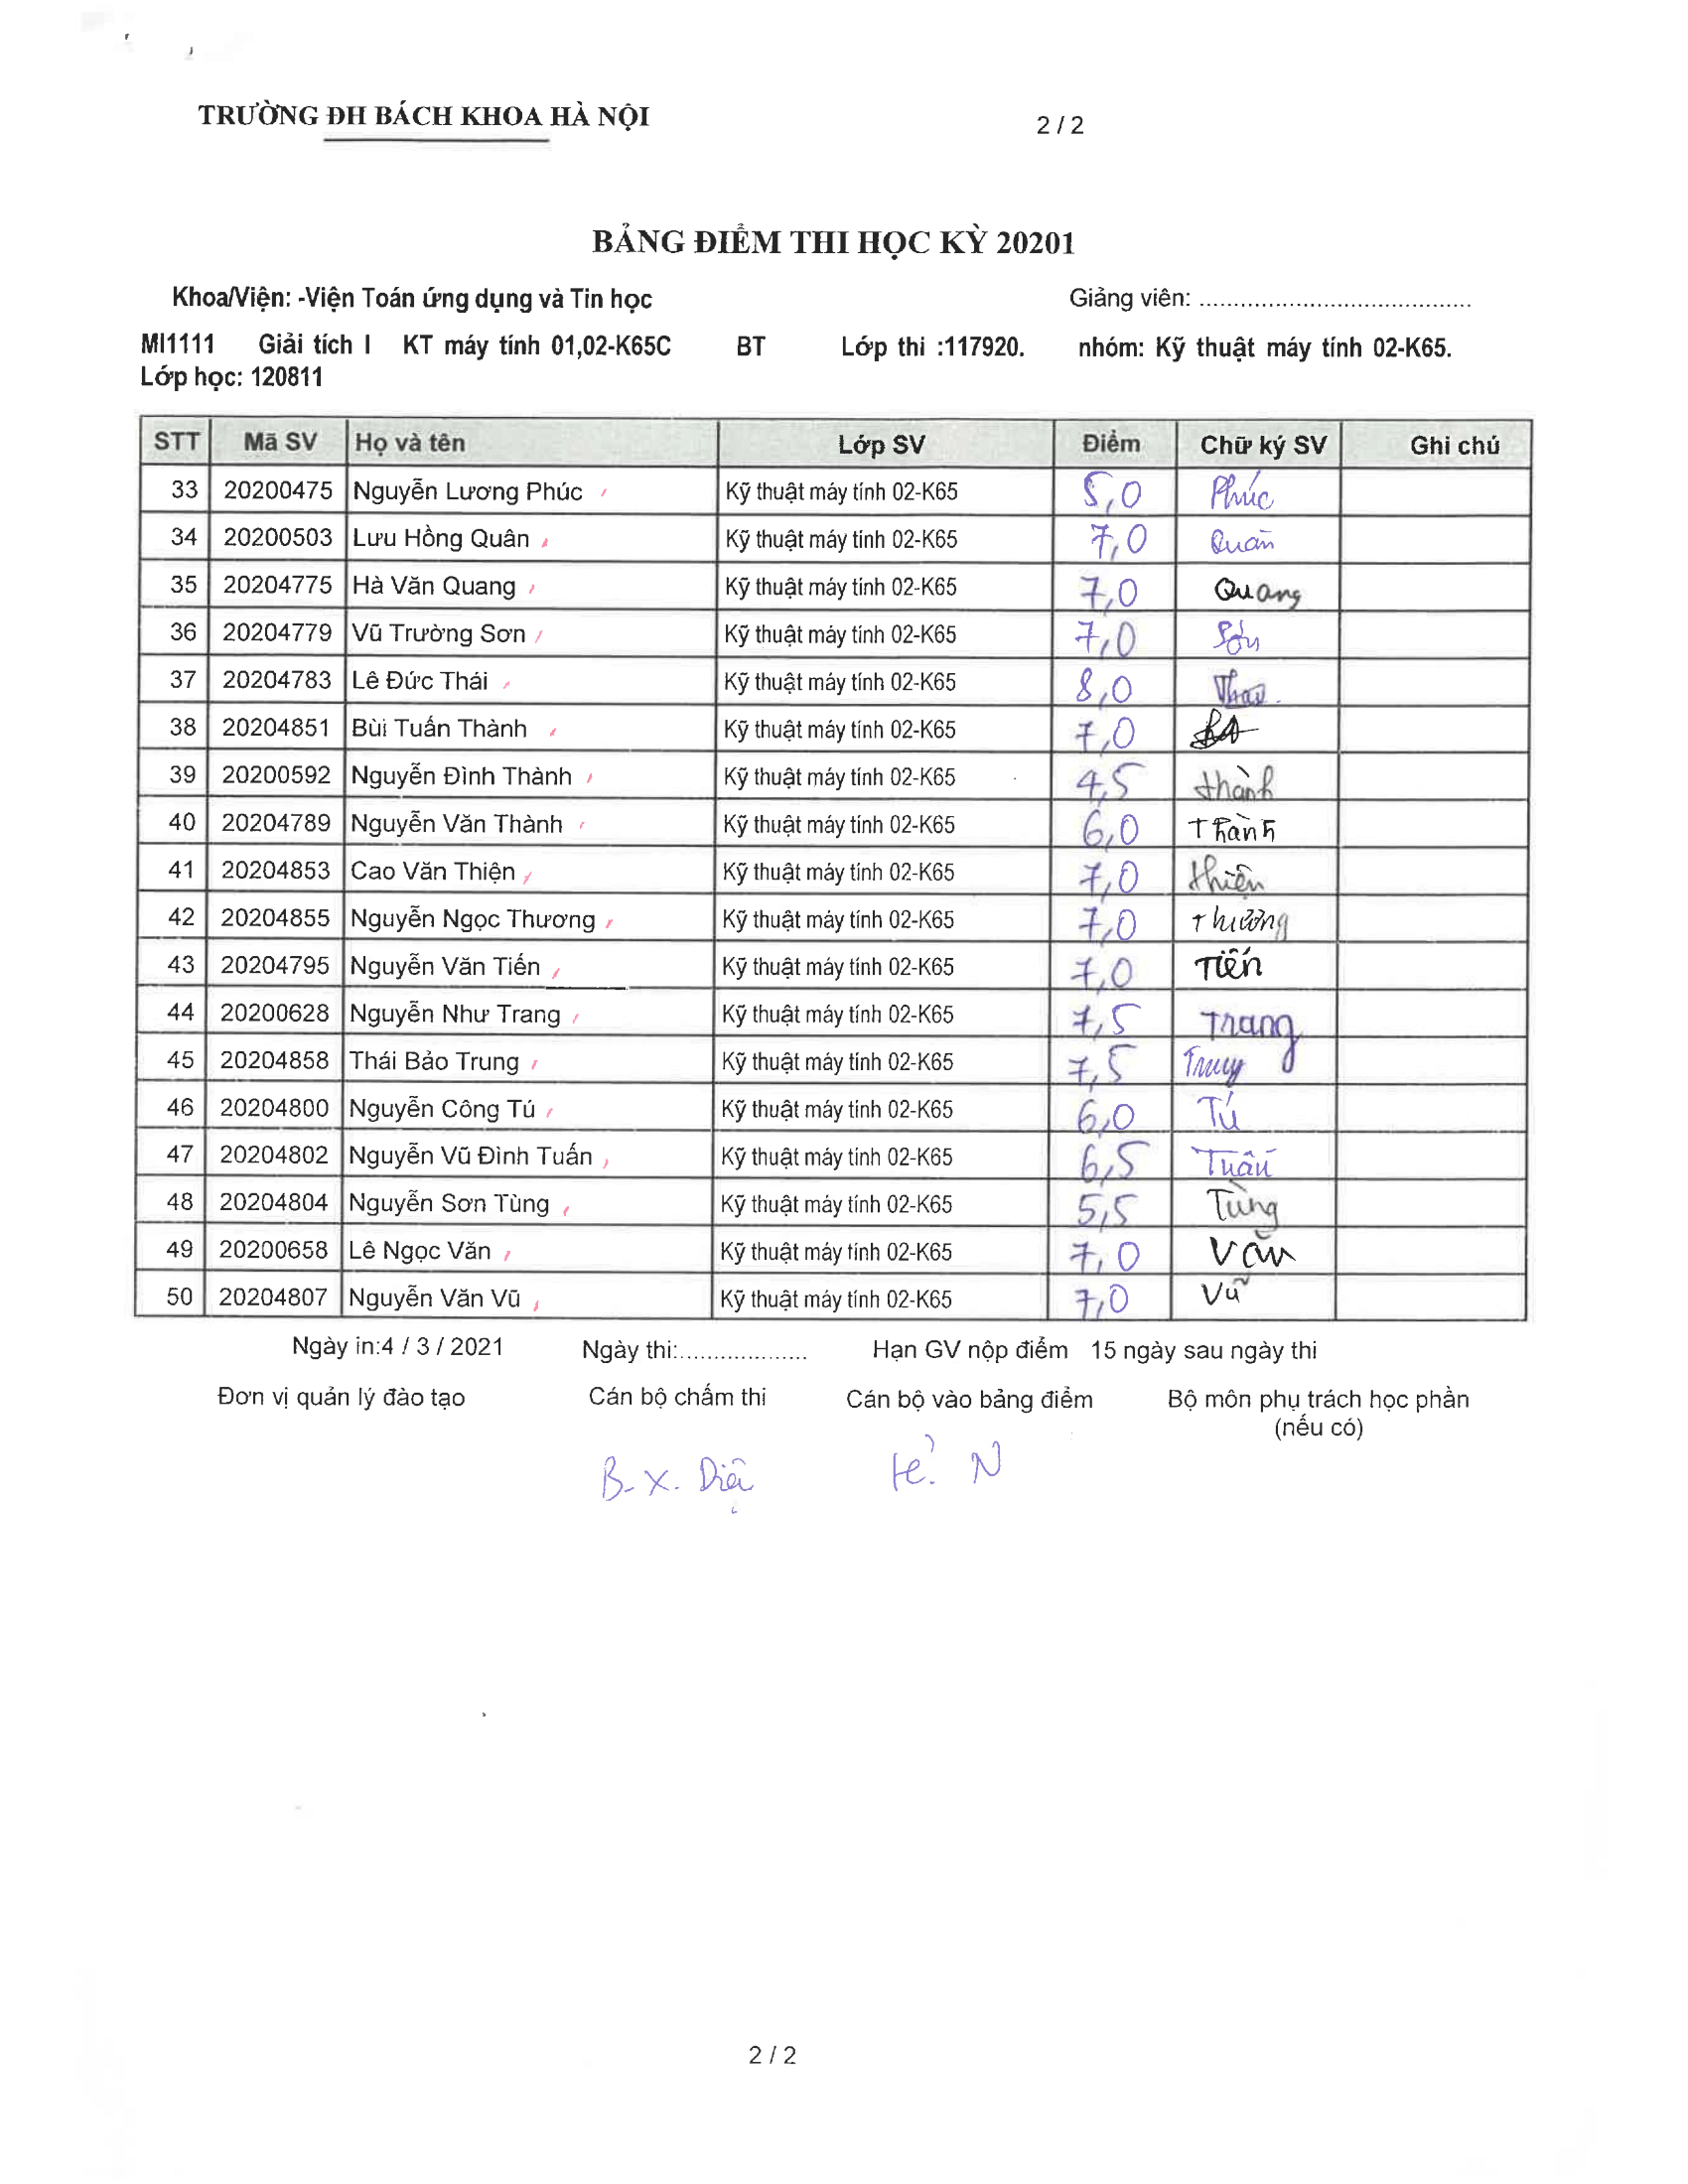 TRƯỜNG ĐH BÁCH KHOA HÀ NỘI 2 / 2
BẢNG ĐIỂM THI HỌC KỲ 20201
Khoa/Viện: -Viện Toán ứng dụng và Tin học Giảng viên: .......................................
MI1111 Giải tích I KT máy tính 01,02-K65C BT Lớp thi :117920. nhóm: Kỹ thuật máy tính 02-K65.
Lớp học: 120811
STT Mã SV Họ và tên Lớp SV Điểm Chữ ký SV Ghi chú
33 20200475 Nguyễn Lương Phúc Kỹ thuật máy tính 02-K65 5,0 Phúc
34 20200503 Lưu Hồng Quân Kỹ thuật máy tính 02-K65 7,0 Quân
35 20204775 Hà Văn Quang Kỹ thuật máy tính 02-K65 7,0 Quang
36 20204779 Vũ Trường Sơn Kỹ thuật máy tính 02-K65 7,0 Sơn
37 20204783 Lê Đức Thái Kỹ thuật máy tính 02-K65 8,0
38 20204851 Bùi Tuấn Thành Kỹ thuật máy tính 02-K65 7,0
39 20200592 Nguyễn Đình Thành Kỹ thuật máy tính 02-K65 4,5 thành
40 20204789 Nguyễn Văn Thành Kỹ thuật máy tính 02-K65 6,0 Thành
41 20204853 Cao Văn Thiện Kỹ thuật máy tính 02-K65 7,0 thiện
42 20204855 Nguyễn Ngọc Thương Kỹ thuật máy tính 02-K65 7,0 Thương
43 20204795 Nguyễn Văn Tiến Kỹ thuật máy tính 02-K65 7,0 Tiến
44 20200628 Nguyễn Như Trang Kỹ thuật máy tính 02-K65 7,5 Trang
45 20204858 Thái Bảo Trung Kỹ thuật máy tính 02-K65 7,5 Trung
46 20204800 Nguyễn Công Tú Kỹ thuật máy tính 02-K65 6,0 Tú
47 20204802 Nguyễn Vũ Đình Tuấn Kỹ thuật máy tính 02-K65 6,5 Tuấn
48 20204804 Nguyễn Sơn Tùng Kỹ thuật máy tính 02-K65 5,5 Tùng
49 20200658 Lê Ngọc Văn Kỹ thuật máy tính 02-K65 7,0 Văn
50 20204807 Nguyễn Văn Vũ Kỹ thuật máy tính 02-K65 7,0 Vũ
Ngày in:4 / 3 / 2021 Ngày thi:................... Hạn GV nộp điểm 15 ngày sau ngày thi
Đơn vị quản lý đào tạo Cán bộ chấm thi Cán bộ vào bảng điểm Bộ môn phụ trách học phần
(nếu có)
B. X. Diệu
2 / 2